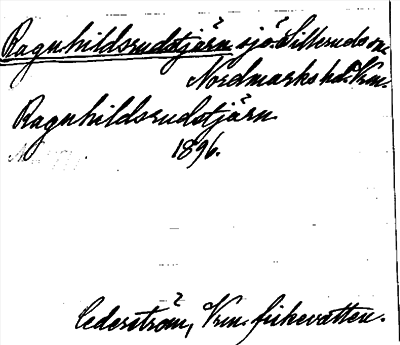 Ragnhildsrudstjärn sjö. Silleruds sn.
Nordmarks hd. Vrm.
Ragnhildsrudstjärn
1896.
Cederström, Vrm. fiskevatten.